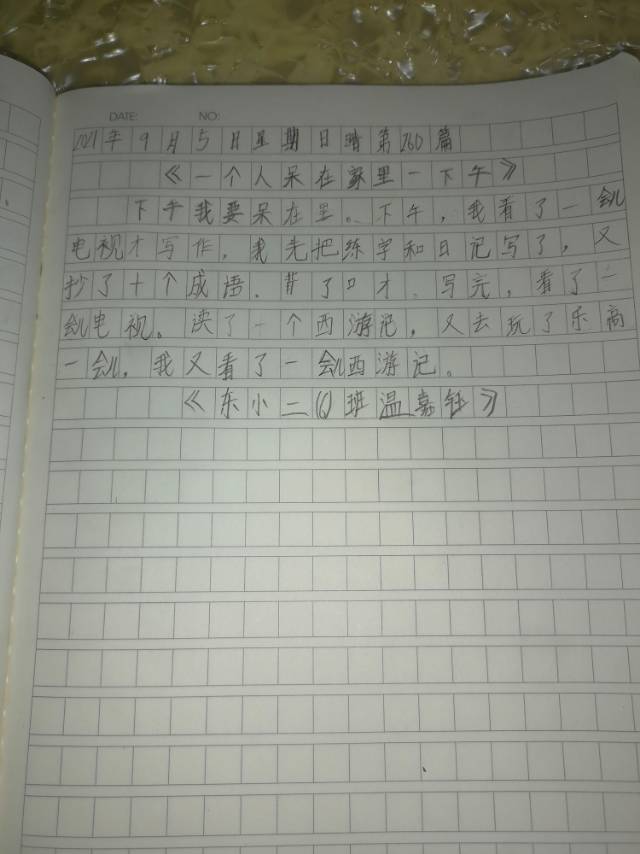 DATE: NO:
2021年9月5日星期日晴第260篇
《一个人呆在家里一下午》
下午我要呆在里。下午，我看了一会儿
电视才写作，我先把练字和日记写了，又
抄了十个成语、背了口才、写完，看了一
会儿电视。读了一个西游记，又去玩了乐高
一会儿，我又看了一会儿西游记。
《东小二(6)班温嘉钰》